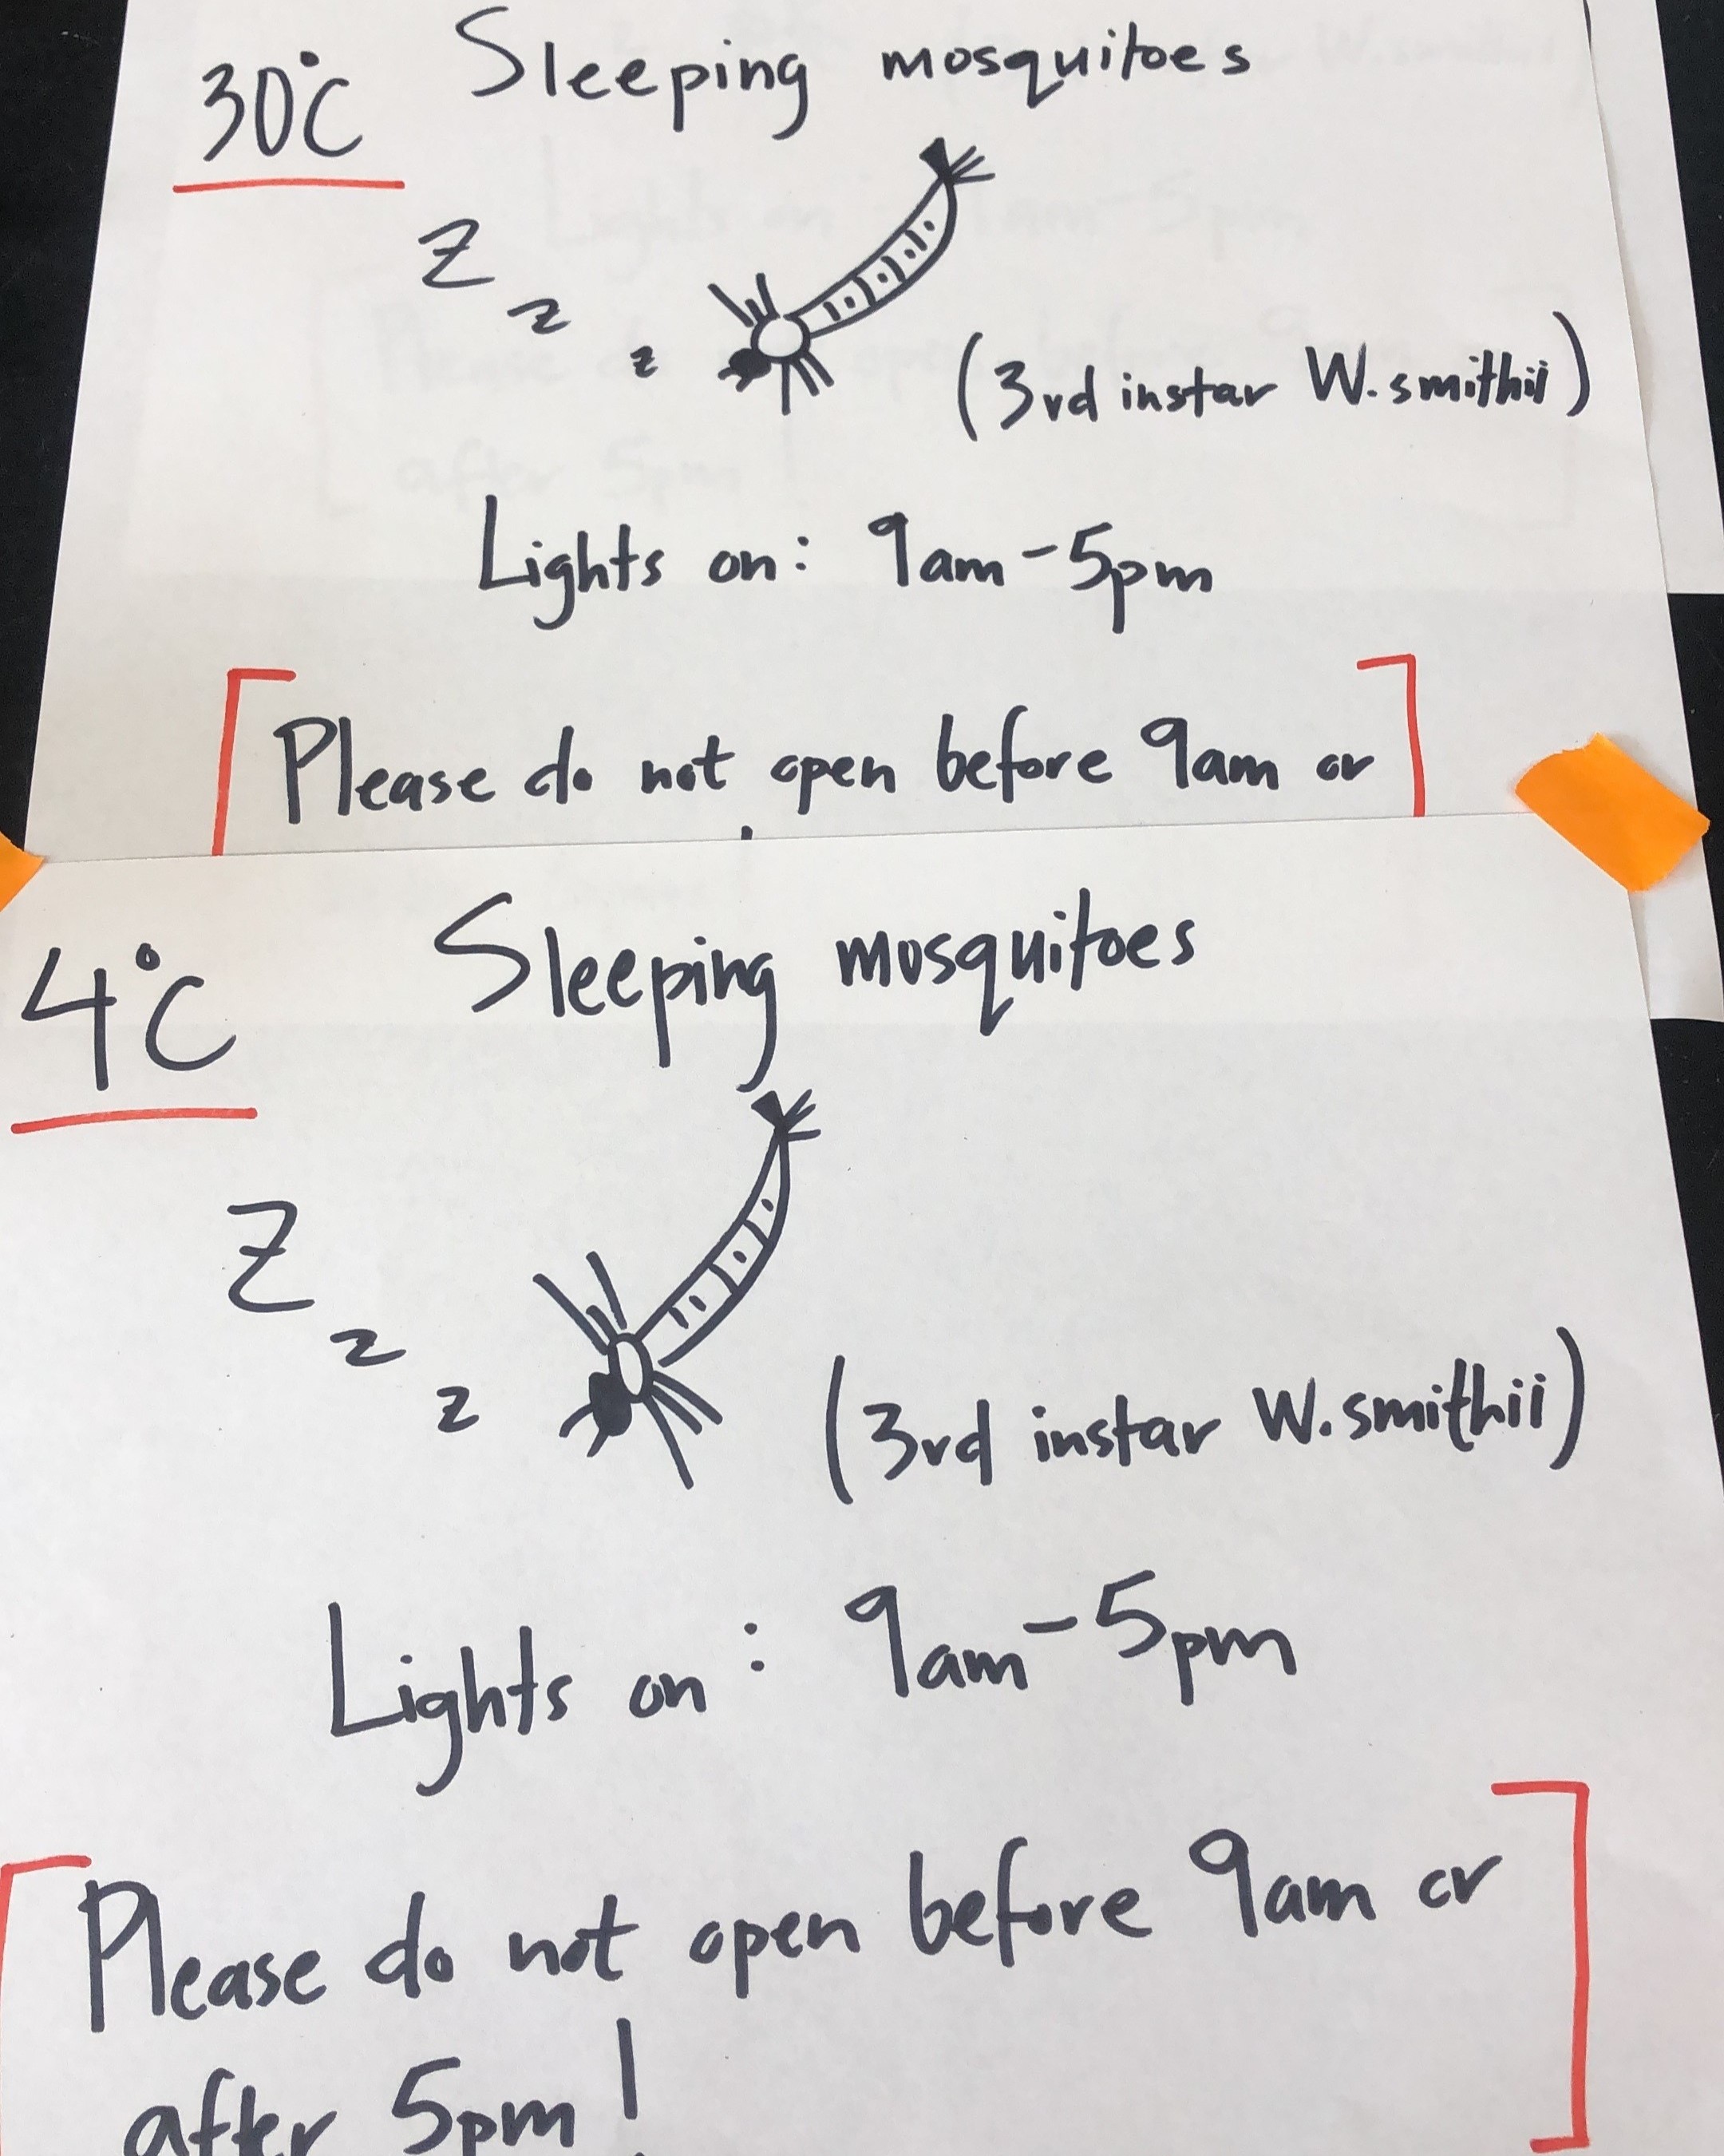 30°C Sleeping mosquitoes
Z
z
z
(3rd instar W. smithii)
Lights on: 9am-5pm
Please do not open before 9am or
4°C Sleeping mosquitoes
Z
z
z
(3rd instar W. smithii)
Lights on: 9am-5pm
Please do not open before 9am or
after 5pm!